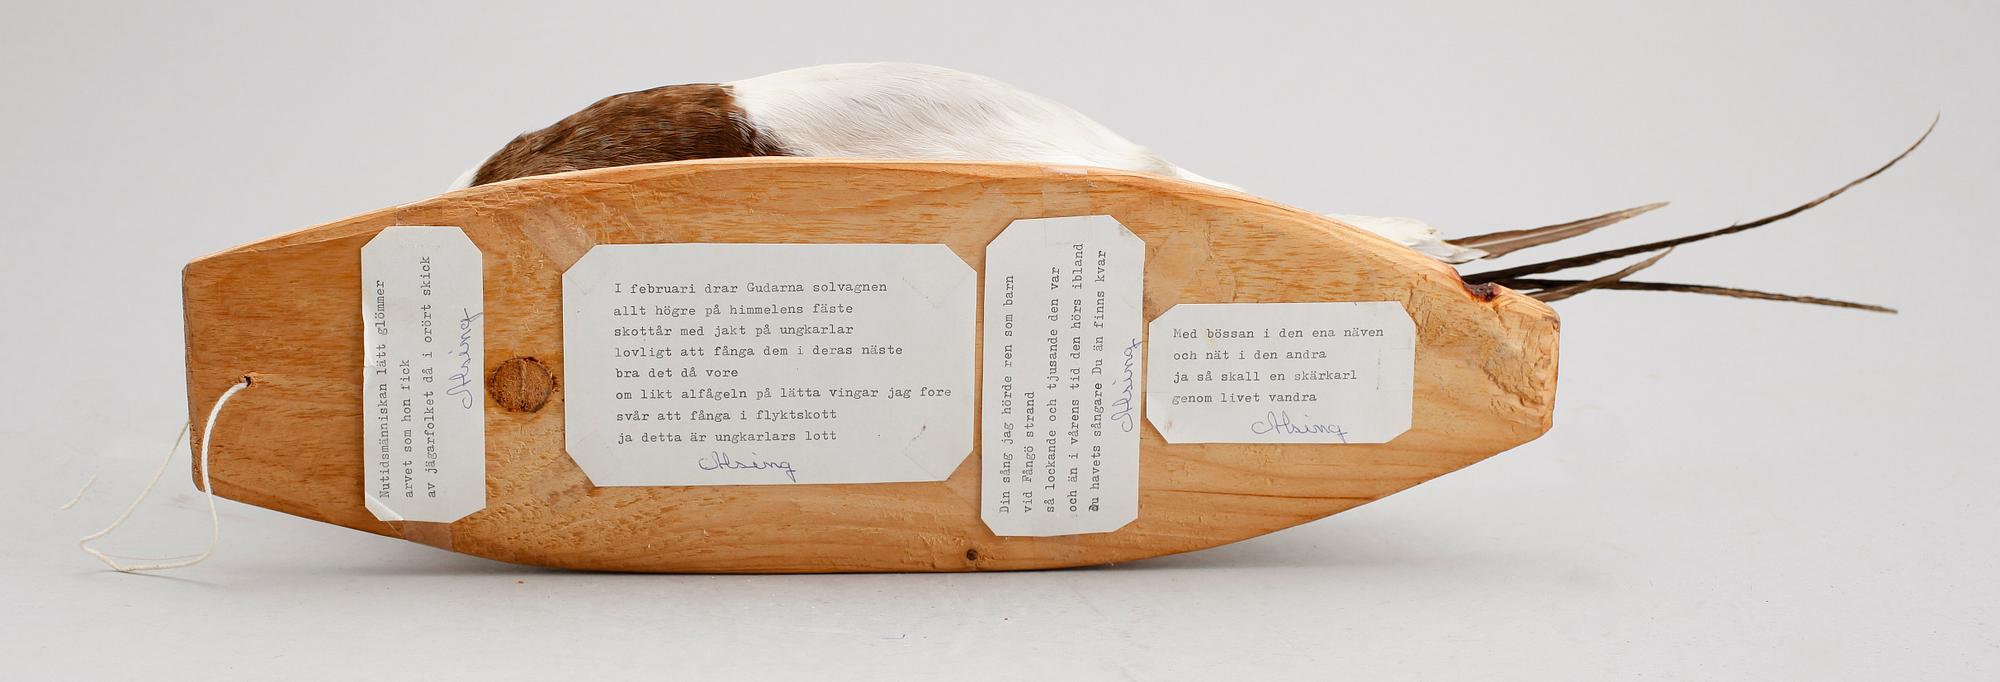 Nutidsmänniskan lätt glömmer
arvet som hon fick
av jägarfolket då i orört skick
Alsing
I februari drar Gudarna solvagnen
allt högre på himmelens fäste
skottår med jakt på ungkarlar
lovligt att fånga dem i deras näste
bra det då vore
om likt alfågeln på lätta vingar jag fore
svår att fånga i flyktskott
ja detta är ungkarlars lott
Alsing
Din sång jag hörde ren som barn
vid Fångö strand
så lockande och tjusande den var
och än i vårens tid den hörs ibland
Du havets sångare Du än finns kvar
Alsing
Med bössan i den ena näven
och nät i den andra
ja så skall en skärkarl
genom livet vandra
Alsing